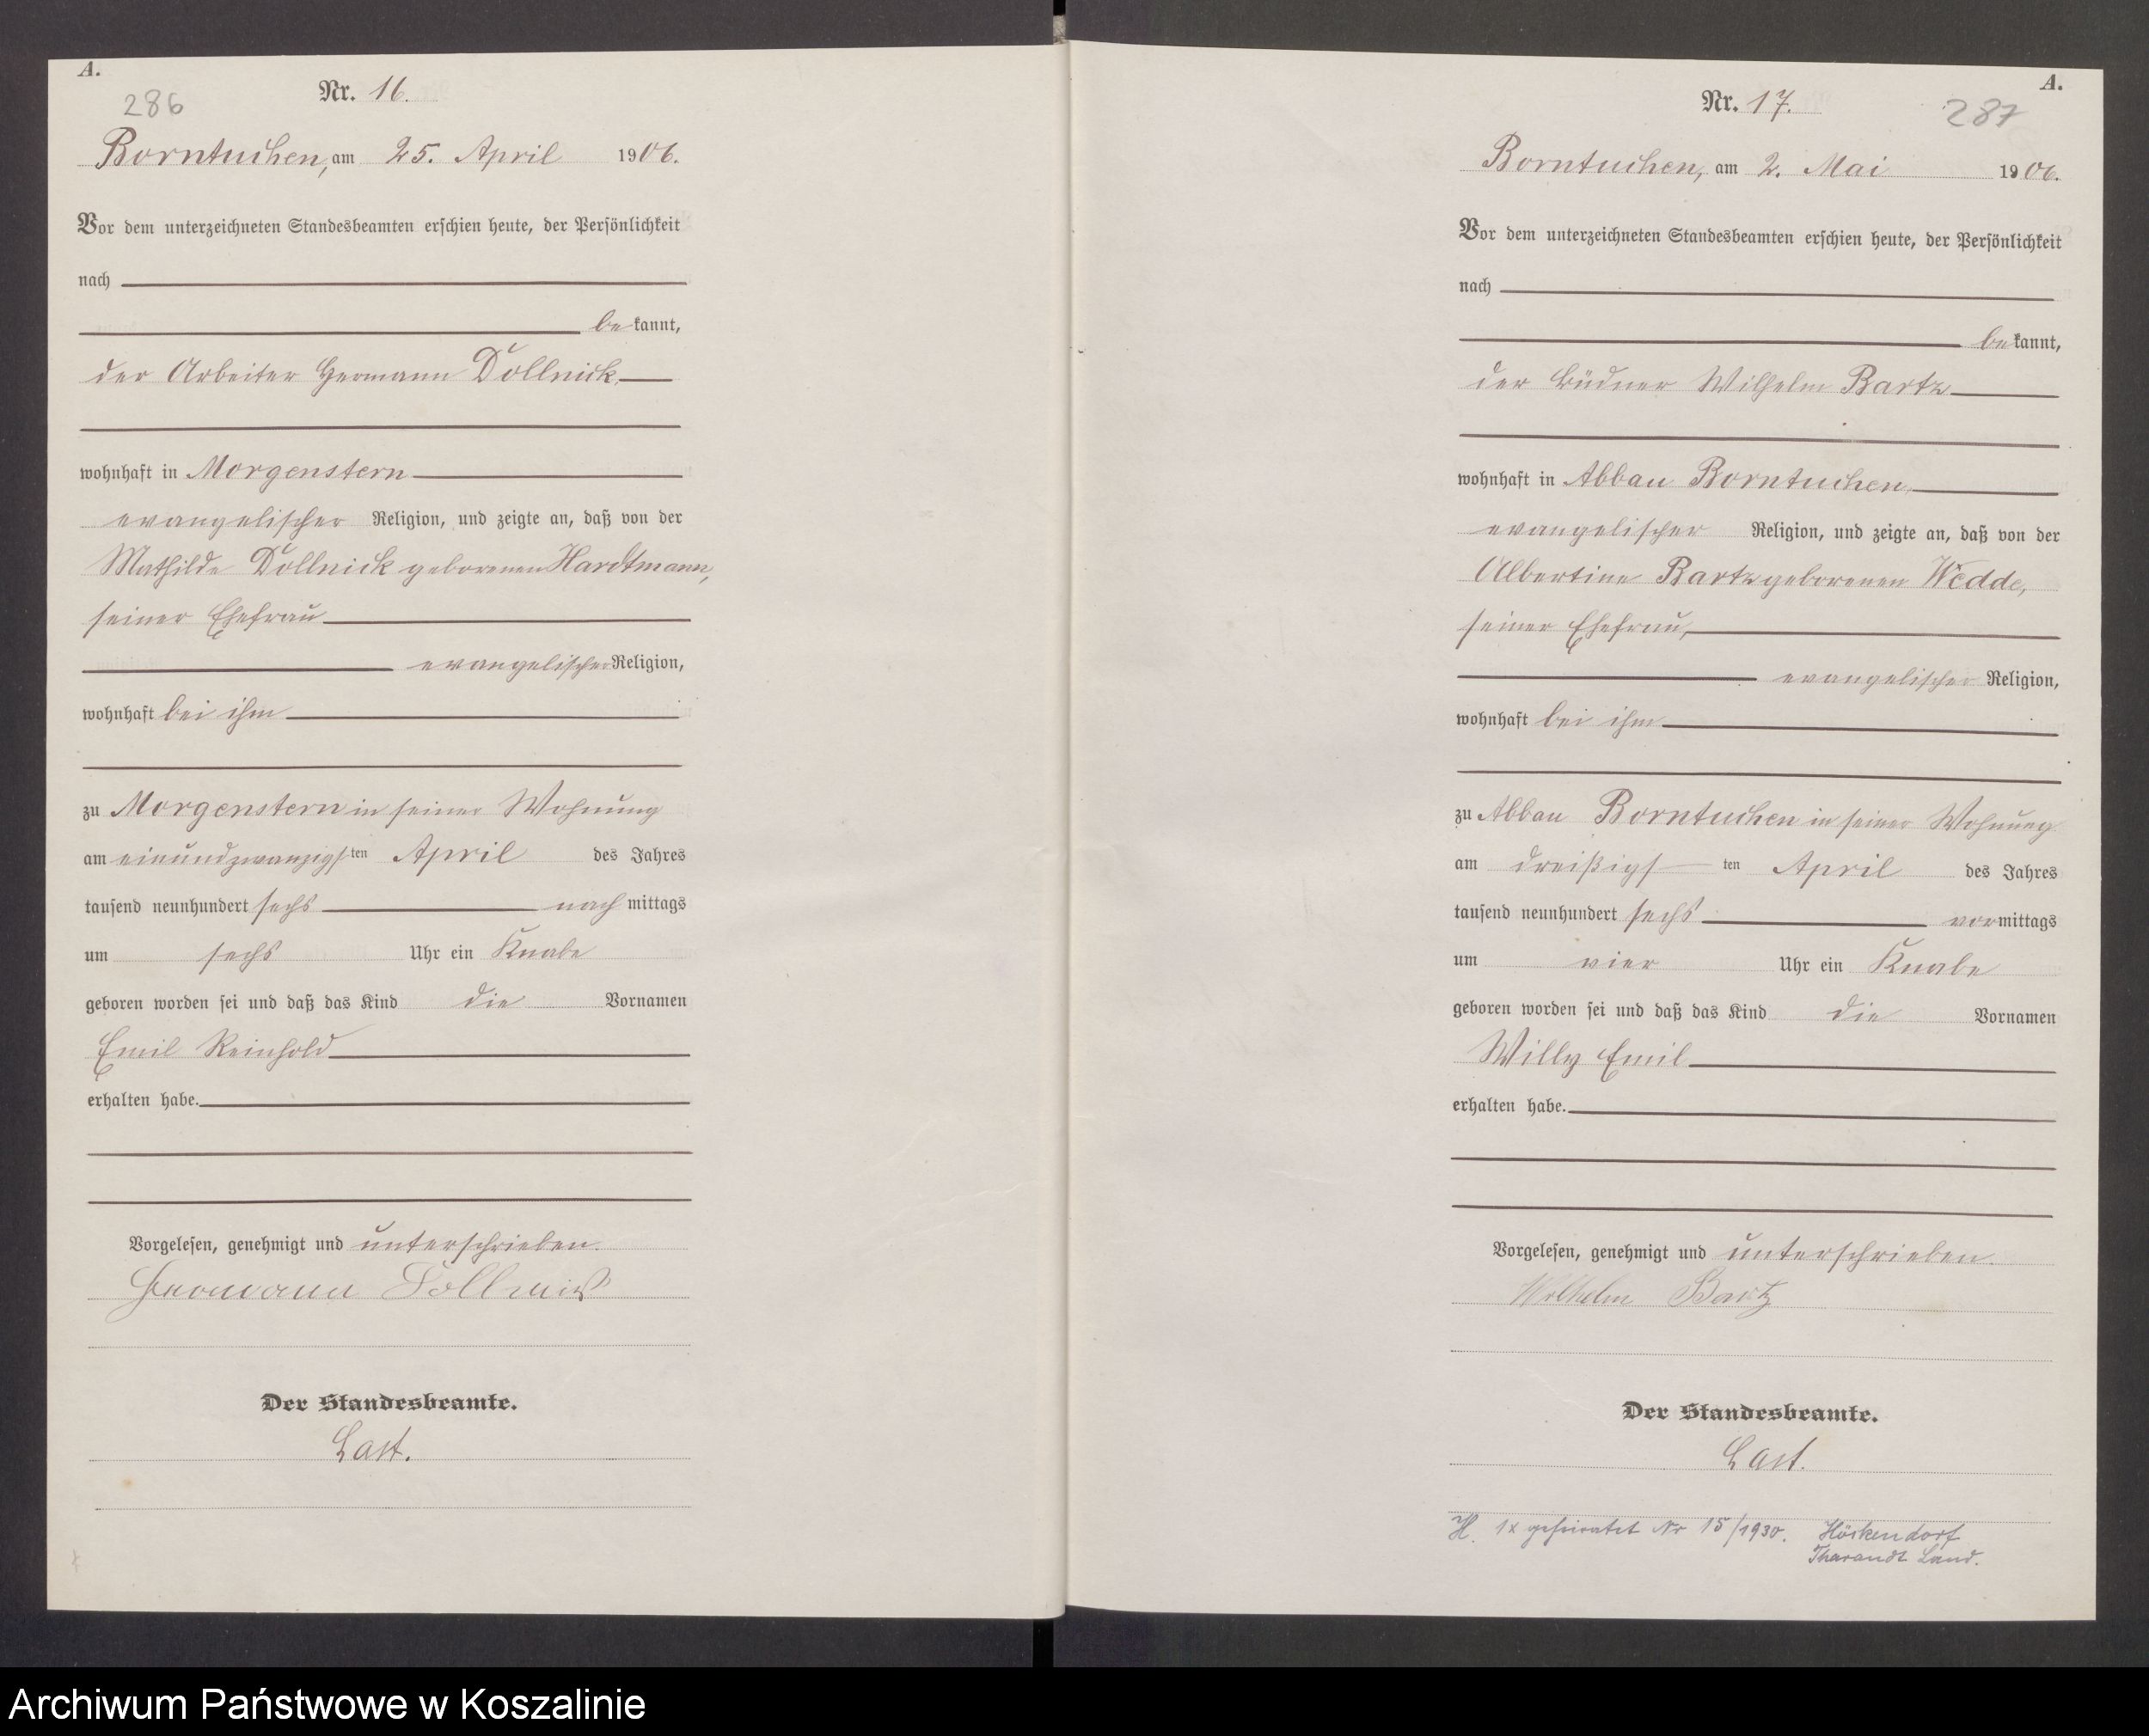 A.
286
Nr. 16.
Borntuchen, am 25. April 1906.
Vor dem unterzeichneten Standesbeamten erschien heute, der Persönlichkeit
nach
bekannt,
der Arbeiter Hermann Dollnick
wohnhaft in Morgenstern
evangelischer Religion, und zeigte an, daß von der
Mathilde Dollnick geborenen Hardtmann,
seiner Ehefrau
evangelischer Religion,
wohnhaft bei ihm
zu Morgenstern in seiner Wohnung
am einundzwanzigsten April des Jahres
tausend neunhundert sechs nachmittags
um sechs Uhr ein Knabe
geboren worden sei und daß das Kind die Vornamen
Emil Reinhold
erhalten habe.
Vorgelesen, genehmigt und unterschrieben.
Hermann Dollnick
Der Standesbeamte.
Last.
A.
Nr. 17.
287
Borntuchen, am 2. Mai 1906.
Vor dem unterzeichneten Standesbeamten erschien heute, der Persönlichkeit
nach
bekannt,
der Büdner Wilhelm Bartz
wohnhaft in Abbau Borntuchen,
evangelischer Religion, und zeigte an, daß von der
Albertine Bartz geborenen Wedde,
seiner Ehefrau,
evangelischer Religion,
wohnhaft bei ihm
zu Abbau Borntuchen in seiner Wohnung
am dreißigsten April des Jahres
tausend neunhundert sechs vormittags
um vier Uhr ein Knabe
geboren worden sei und daß das Kind die Vornamen
Willy Emil
erhalten habe.
Vorgelesen, genehmigt und unterschrieben.
Wilhelm Bartz
Der Standesbeamte.
Last.
H. 1x geheiratet Nr 15/1930. Höckendorf
Tharandt Land.
Archiwum Państwowe w Koszalinie